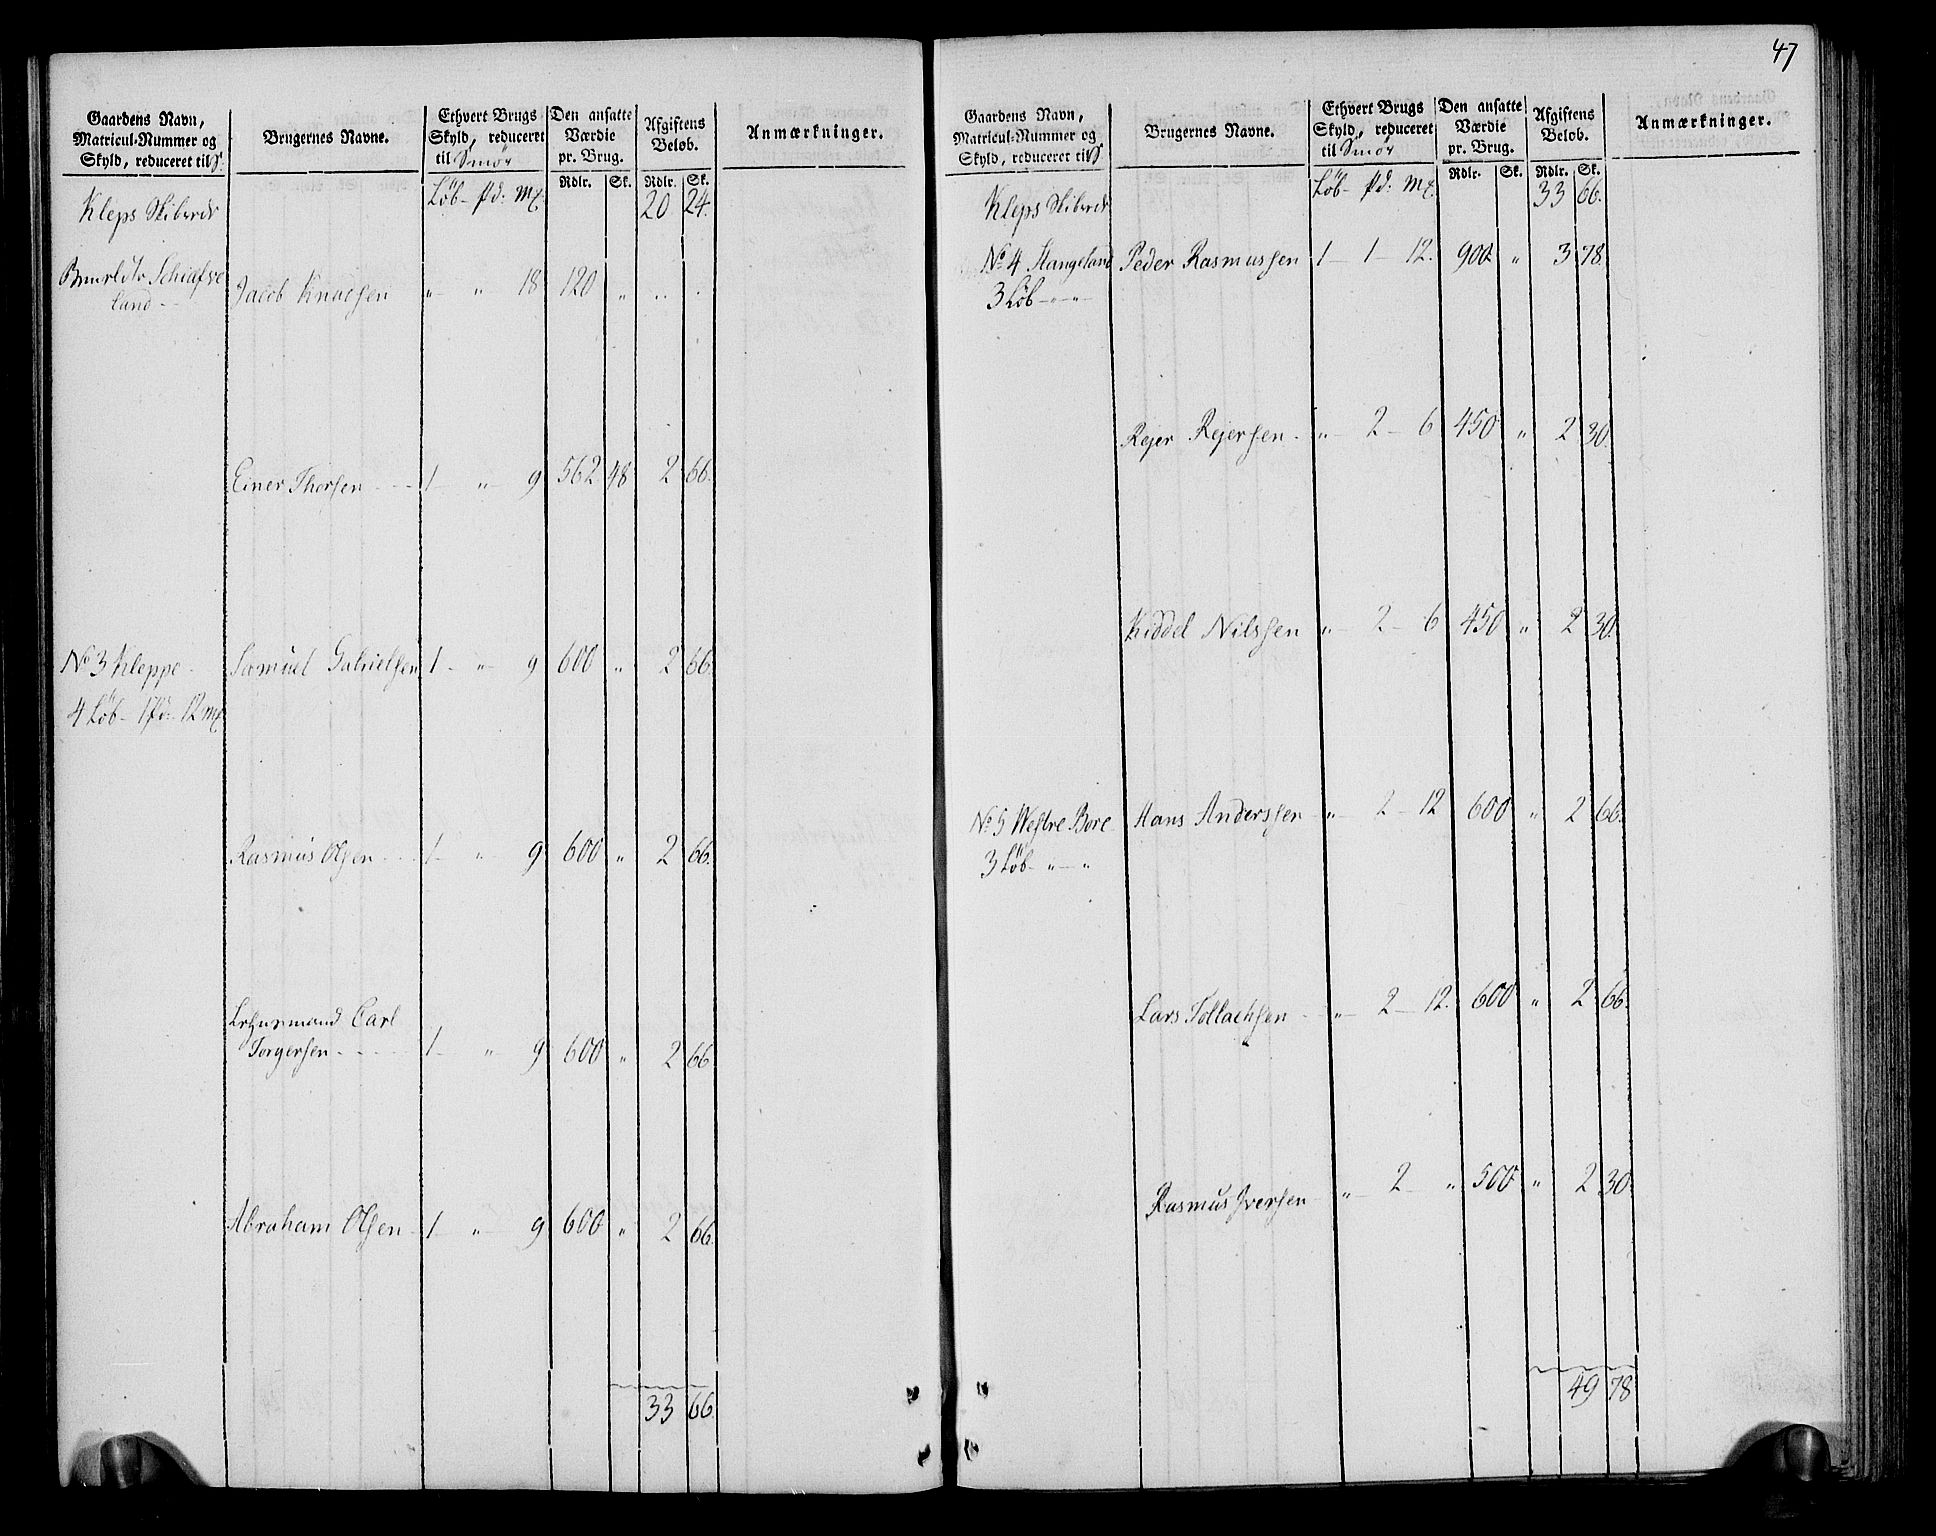 47
Gaardens Navn, Matricul-Nummer og Skyld, reduceret til S.
Brugernes Navne.
Ethvert Brugs Skyld, reduceret til Smör
Den ansatte Værdie pr. Brug.
Afgiftens Beløb.
Anmærkninger.
Rdlr. Sk. Rdlr. Sk.
Kleps Skibrede Löb - Pd: Mk. 20 24.
land - - Jacob Knudsen " - " 18 120 " " "
Einer Thorsen - - - 1 - " - 9 562 48 2 66.
No 3 Kleppe - Samuel Gabrielsen 1 - " - 9 600 " 2 66.
4 Löb - 1 Pd: 12 Mk
Rasmus Olsen - - - 1 - " - 9 600 " 2 66.
Lehnsmand Carl
Torgersen - - - - - 1 - " 9 600 " 2 66.
Abraham Olsen - 1 - " - 9 600 " 2 66.
33 66.
Gaardens Navn, Matricul-Nummer og Skyld, reduceret til S
Brugernes Navne.
Ethvert Brugs Skyld, reduceret til Smör
Den ansatte Værdie pr. Brug.
Afgiftens Beløb.
Anmærkninger.
Rdlr. Sk. Rdlr. Sk.
Kleps Skibrede Löb - Pd: Mk. 33 66.
No 4 Stangeland Peder Rasmussen 1 - 1 - 12. 900 " 3 78.
3 Löb - " - "
Rejer Rejersen - " - 2 - 6 450 " 2 30.
Kiddel Nilssen " - 2 - 6 450 " 2 30.
No 5 Westre Bore - Hans Anderssen - " - 2 - 12 600 " 2 66.
3 Löb - " - "
Lars Tollachsen - - " - 2 - 12. 600 " 2 66.
Rasmus Iversen - " - 2 - " 500 " 2 30.
49 78